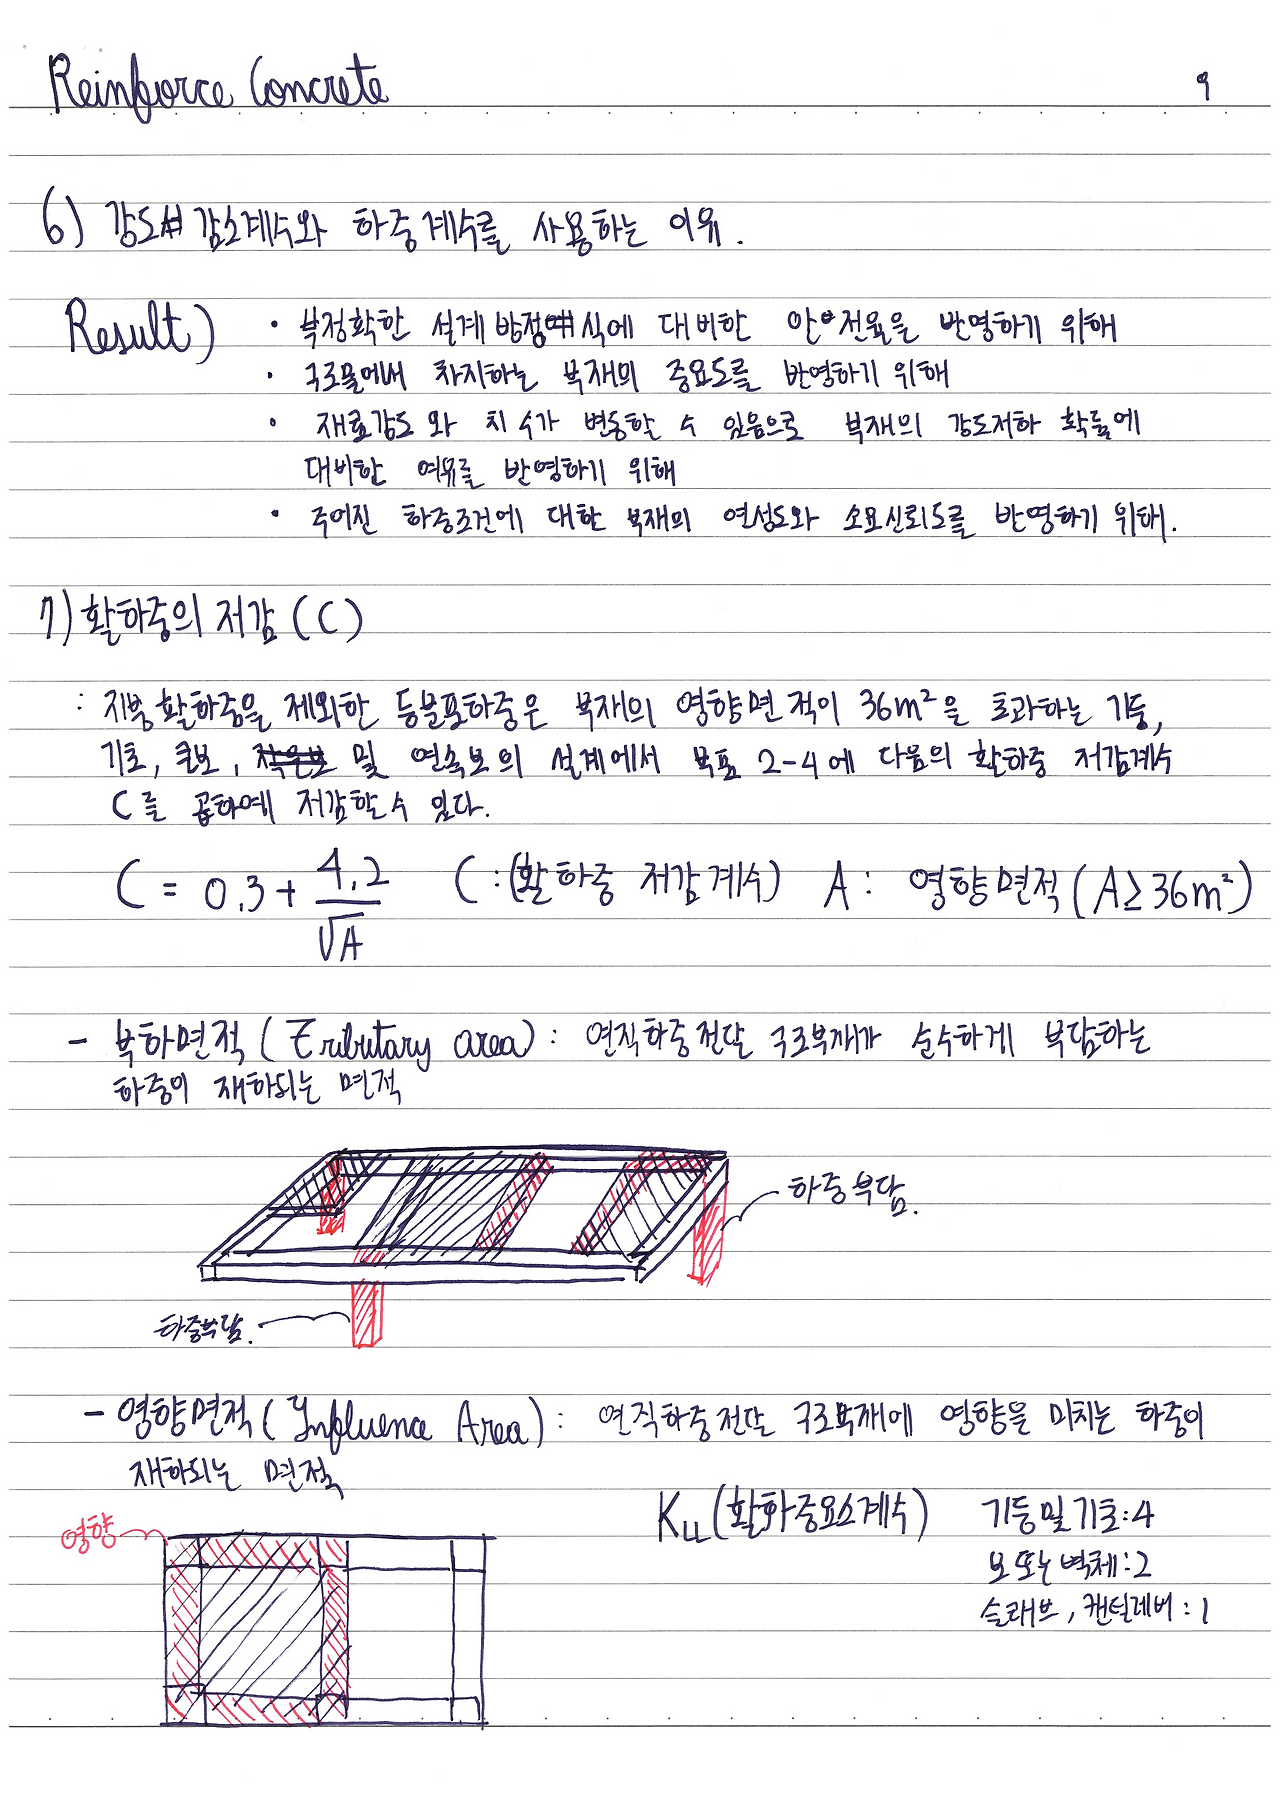 Reinforce Concrete 9
6) 강도 감소계수와 하중계수를 사용하는 이유.
Result) · 부정확한 설계 방정식에 대비한 안전율을 반영하기 위해
· 구조물에서 차지하는 부재의 중요도를 반영하기 위해
· 재료강도와 치수가 변동할 수 있음으로 부재의 강도저하 확률에
대비한 여유를 반영하기 위해
· 주어진 하중조건에 대한 부재의 연성도와 소요신뢰도를 반영하기 위해.
7) 활하중의 저감 (C)
: 지붕활하중을 제외한 등분포하중은 부재의 영향면적이 36m²을 초과하는 기둥,
기초, 큰보, 및 연속보의 설계에서 부표 2-4에 다음의 활하중 저감계수
C를 곱하여 저감할 수 있다.
C = 0.3 + 4.2/√A C : (활하중 저감계수) A : 영향면적 (A≥36m²)
- 부하면적 (Tributary area) : 연직하중전달 구조부재가 순수하게 부담하는
하중이 재하되는 면적
하중부담.
하중부담.
- 영향면적 (Influence Area) : 연직하중전달 구조부재에 영향을 미치는 하중이
재하되는 면적
영향
K_LL (활하중요소계수) 기둥 및 기초 : 4
보 또는 벽체 : 2
슬래브, 캔틸레버 : 1